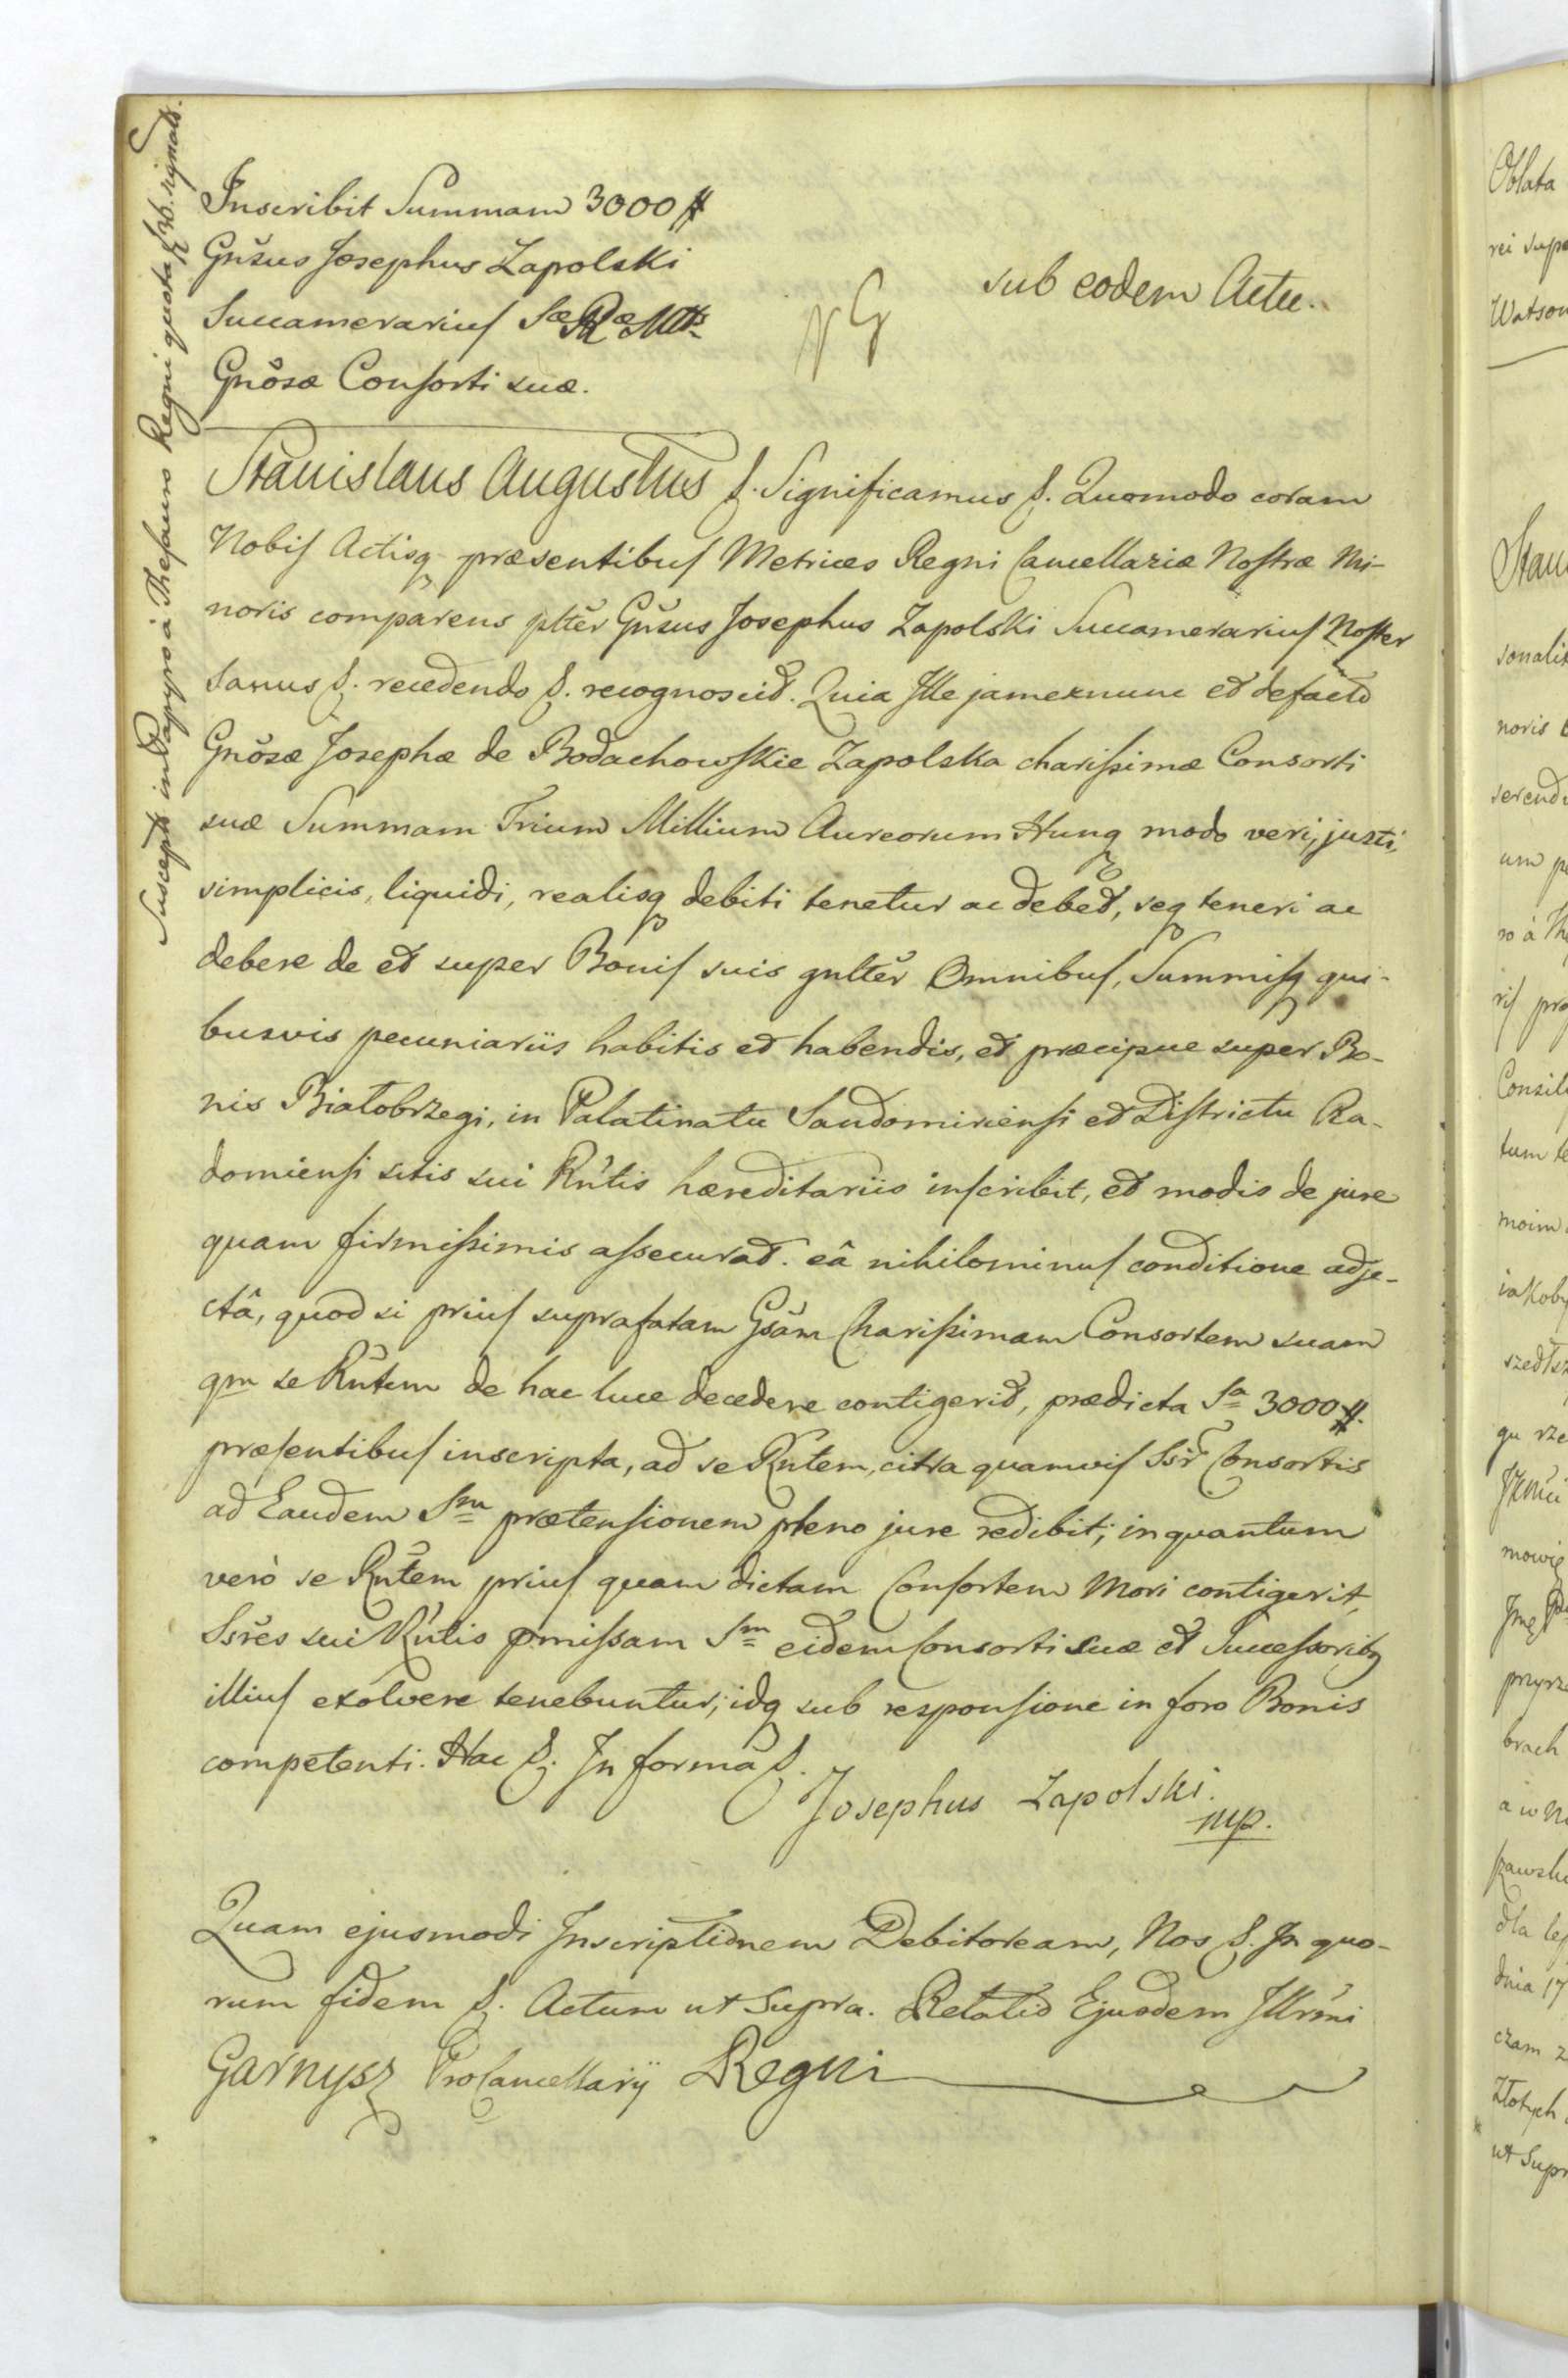 Suscept: in Papyro à Thesauro Regni quota
Inscribit Summam 3000 #
Gnšus Josephus Zapolski
Succamerarius Sæ Ræ Mttis
Gnõsæ Consorti suæ.
sub eodem Actu.
Stanislaus Augustus S. Significamus S. Quomodo coram
Nobis Actisq præsentibus Metrices Regni Cancellariæ Nostræ Mi-
noris comparens plter Gnšus Josephus Zapolski Succamerarius Noster
Sanus S. recedendo S. recognoscit. Quia Ille jamexnunc et defacto
Gnõsæ Josephæ de Bodachowskie Zapolska charissimæ Consorti
suæ Summam Trium Millium Aureorum Hung modo veri, justi,
simplicis, liquidi, realisq debiti tenetur ac debet, seq teneri ac
debere de et super Bonis suis gnlter Omnibus, Summisq qui-
busvis pecuniariis habitis et habendis, et præcipue super Bo-
nis Białobrzegi, in Palatinatu Sandomiriensi et Districtu Ra-
domiensi sitis sui Rntis hæreditariis inscribit, et modis de jure
quam firmissimis assecurat. eâ nihilominus conditione adje-
ctâ, quod si prius suprafatam Gsãm Charissimam Consortem suam
qm se Rntem de hac luce decedere contigerit, prædicta Sa 3000 #.
præsentibus inscripta, ad se Rntem, citra quamvis Ssr Consortis
ad Eandem Sm prætensionem pleno jure redibit; inquantum
verò se Rntem prius quam dictam Consortem Mori contigerit,
Ssres sui Rntis pmissam Sm eidem Consorti suæ et Successoribq
illius exolvere tenebuntur; idq sub responsione in foro Bonis
competenti. Hac S. In formâ S.
Josephus Zapolski.
mp.
Quam ejusmodi Inscriptionem Debitoream, Nos S. In quo-
rum fidem S. Actum ut Supra. Relatio Ejusdem Illrmi
Garnysz ProCancellarij Regni
Oblata
rei supe
Watson
Stani
sonalit
noris
serend
um pe
ro à Th
ris pro
Consil
tum te
moim
iakoby
szedłsz
gu rze
mowię
przyrz
brach
a w
dla lep
dnia 17
czam z
Złotych
ut Supr